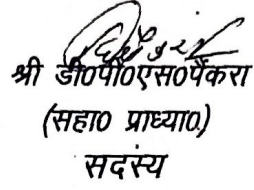 श्री डी0पी0एस0पैंकरा
(सहा0 प्राध्या0)
सदस्य